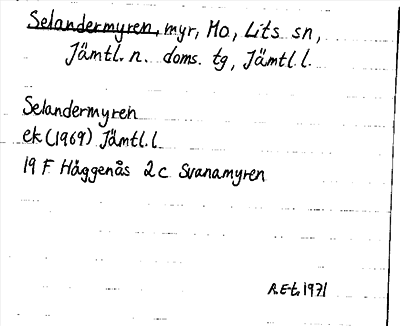 Selandermyren, myr, Mo, Lits sn,
Jämtl. n. doms. tg, Jämtl. l.
Selandermyren
ek (1969) Jämtl. l.
19 F Häggenås 2 c Svanamyren
R.E-t. 1971